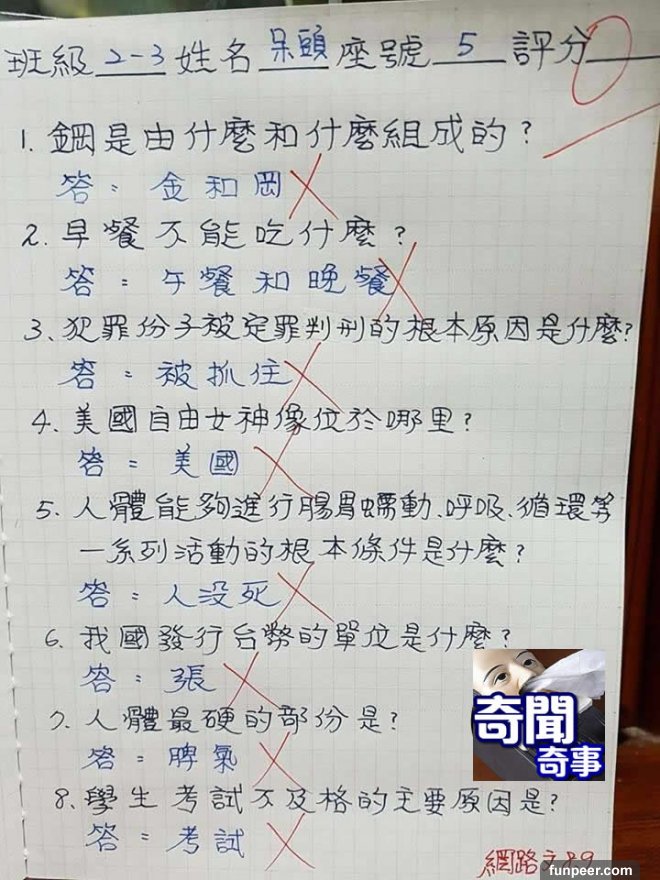 班級 2-3 姓名 呆頭 座號 5 評分 0
1. 鋼是由什麼和什麼組成的?
答: 金和岡
2. 早餐不能吃什麼?
答: 午餐和晚餐
3、犯罪份子被定罪判刑的根本原因是什麼?
答: 被抓住
4、美國自由女神像位於哪里?
答: 美國
5、人體能夠進行腸胃蠕動、呼吸、循環等
一系列活動的根本條件是什麼?
答: 人没死
6、我國發行台幣的單位是什麼?
答: 張
7、人體最硬的部份是?
答: 脾氣
8、學生考試不及格的主要原因是?
答: 考試
奇聞
奇事
網路文
funpeer.com